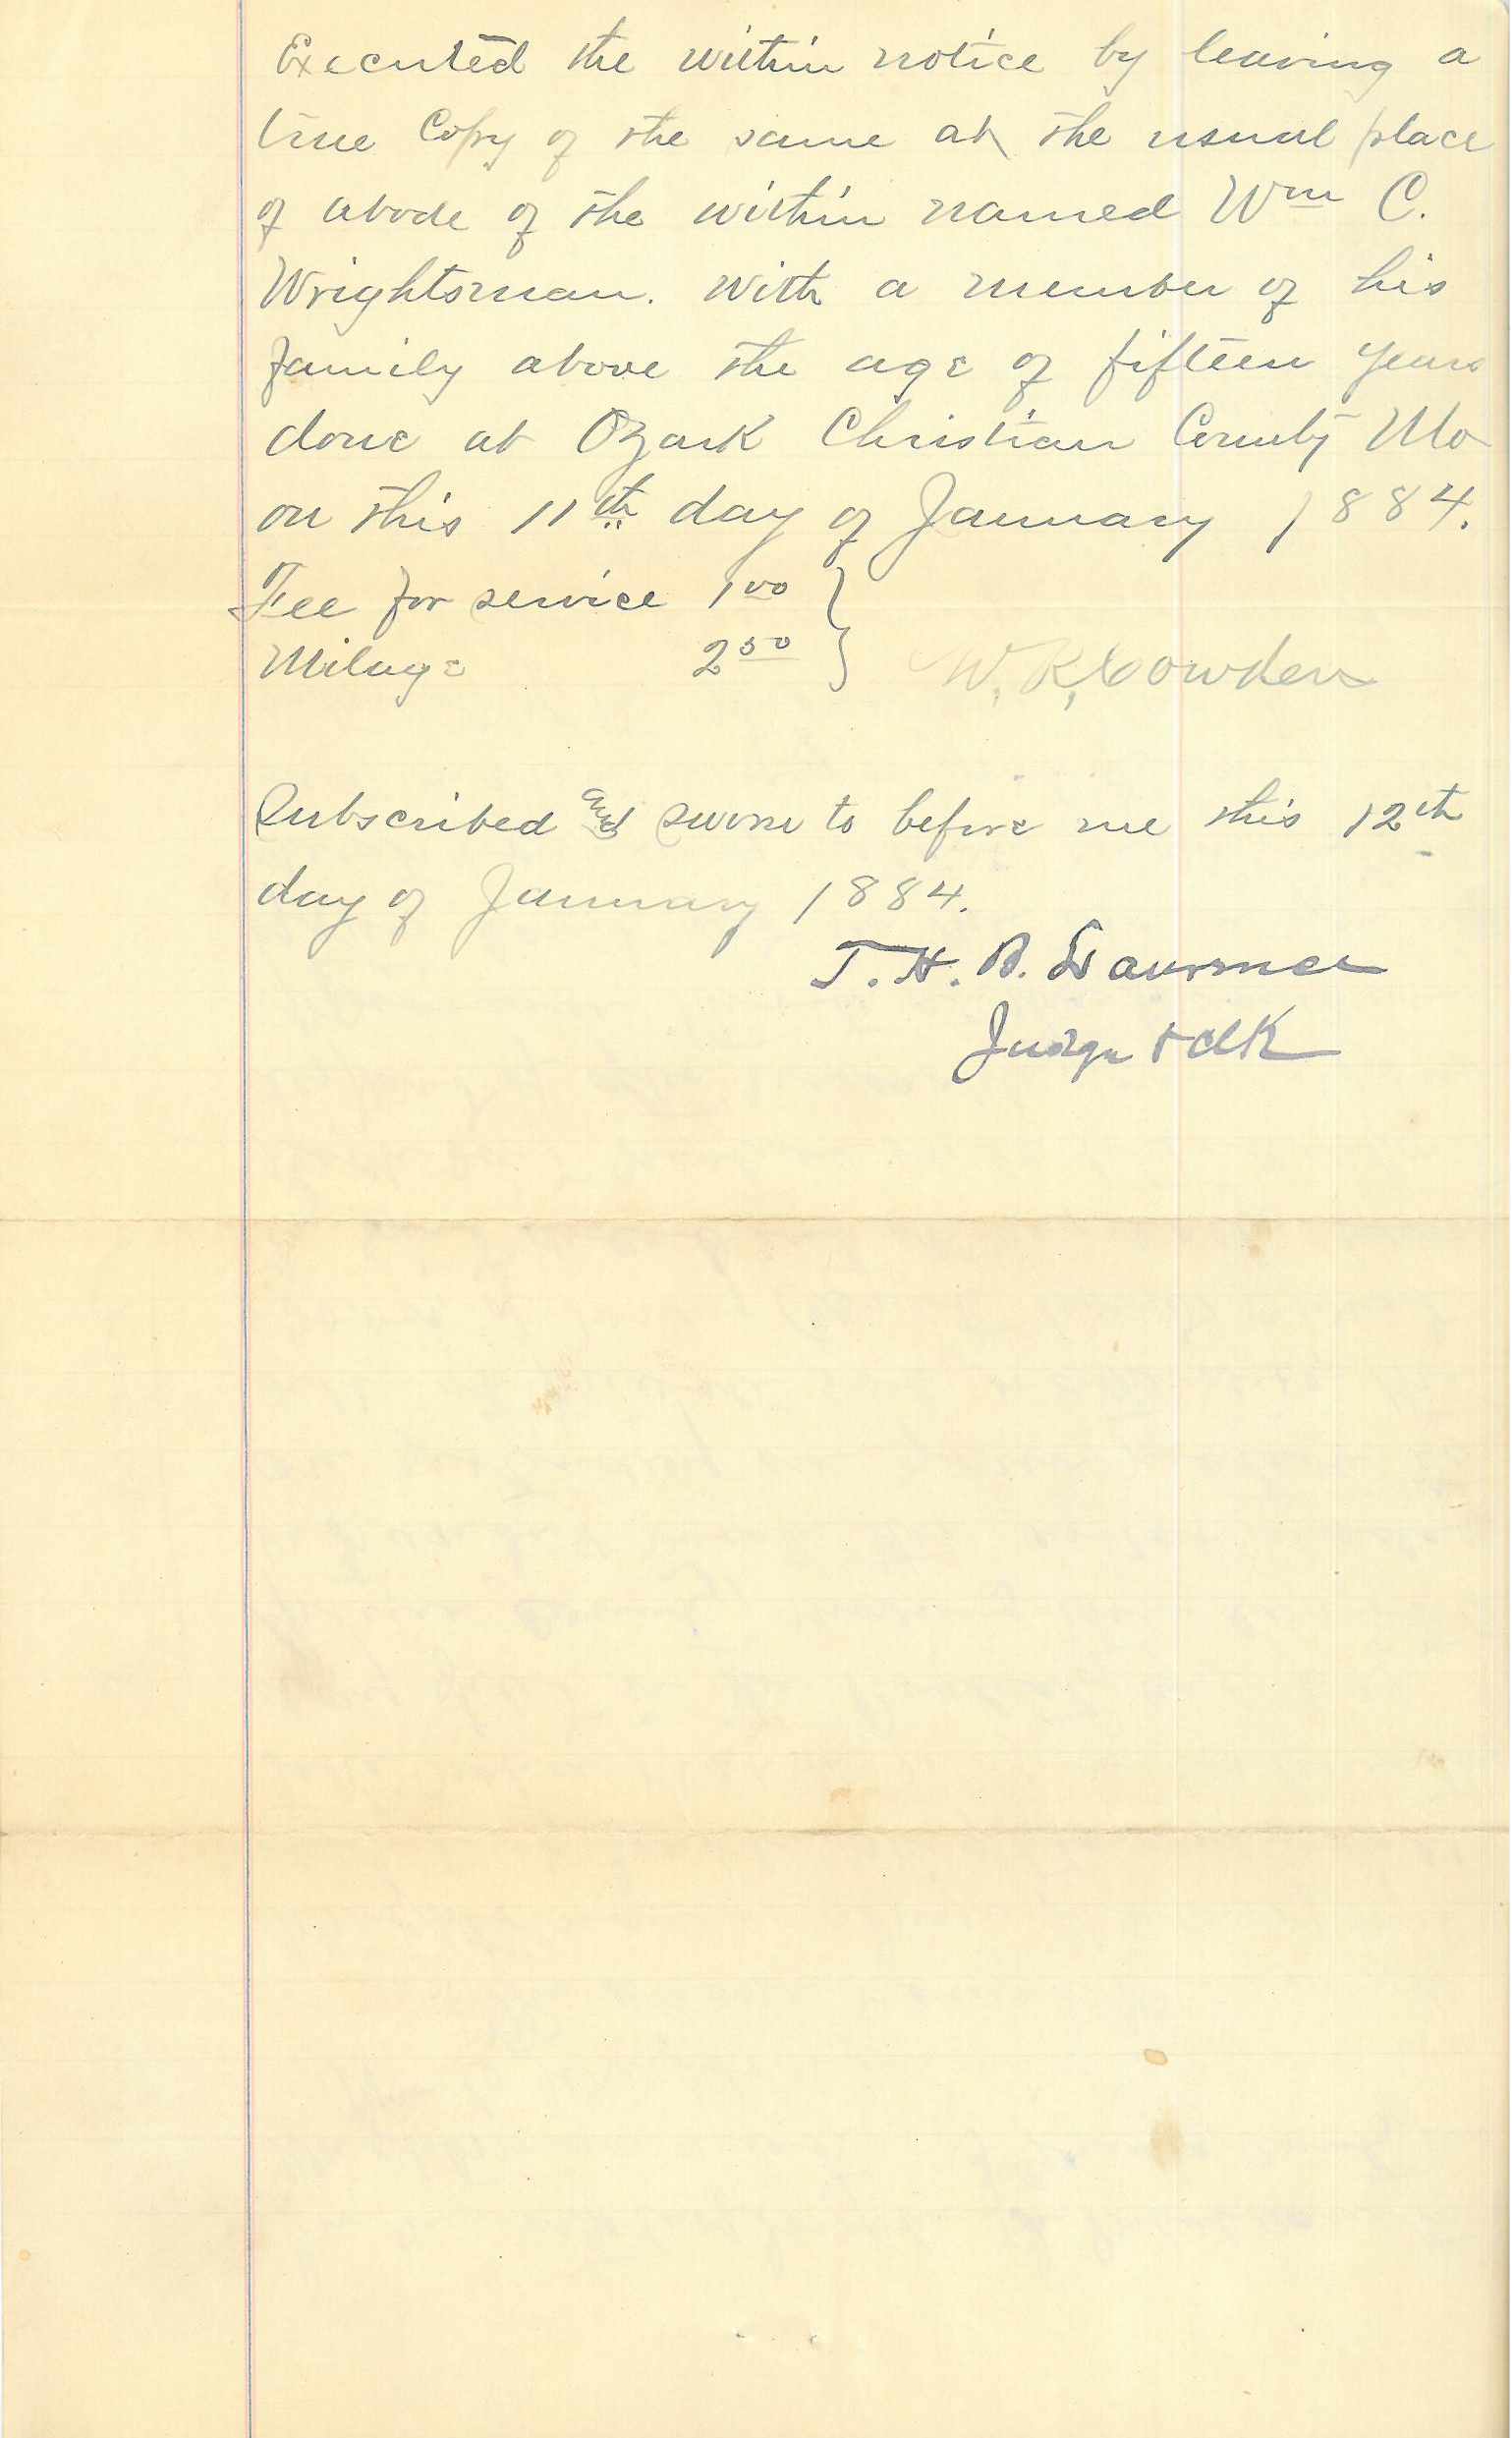 Executed the within notice by leaving a
true Copy of the same at the usual place
of abode of the within named Wm C.
Wrightsman. with a member of his
family above the age of fifteen years
done at Ozark Christian County Mo
on this 11th day of January 1884.
Fee for service 1 00
Milage 2 50 W. R. Cowden
Subscribed and sworn to before me this 12th
day of January 1884.
T. H. B. Lawrence
Judge & clk